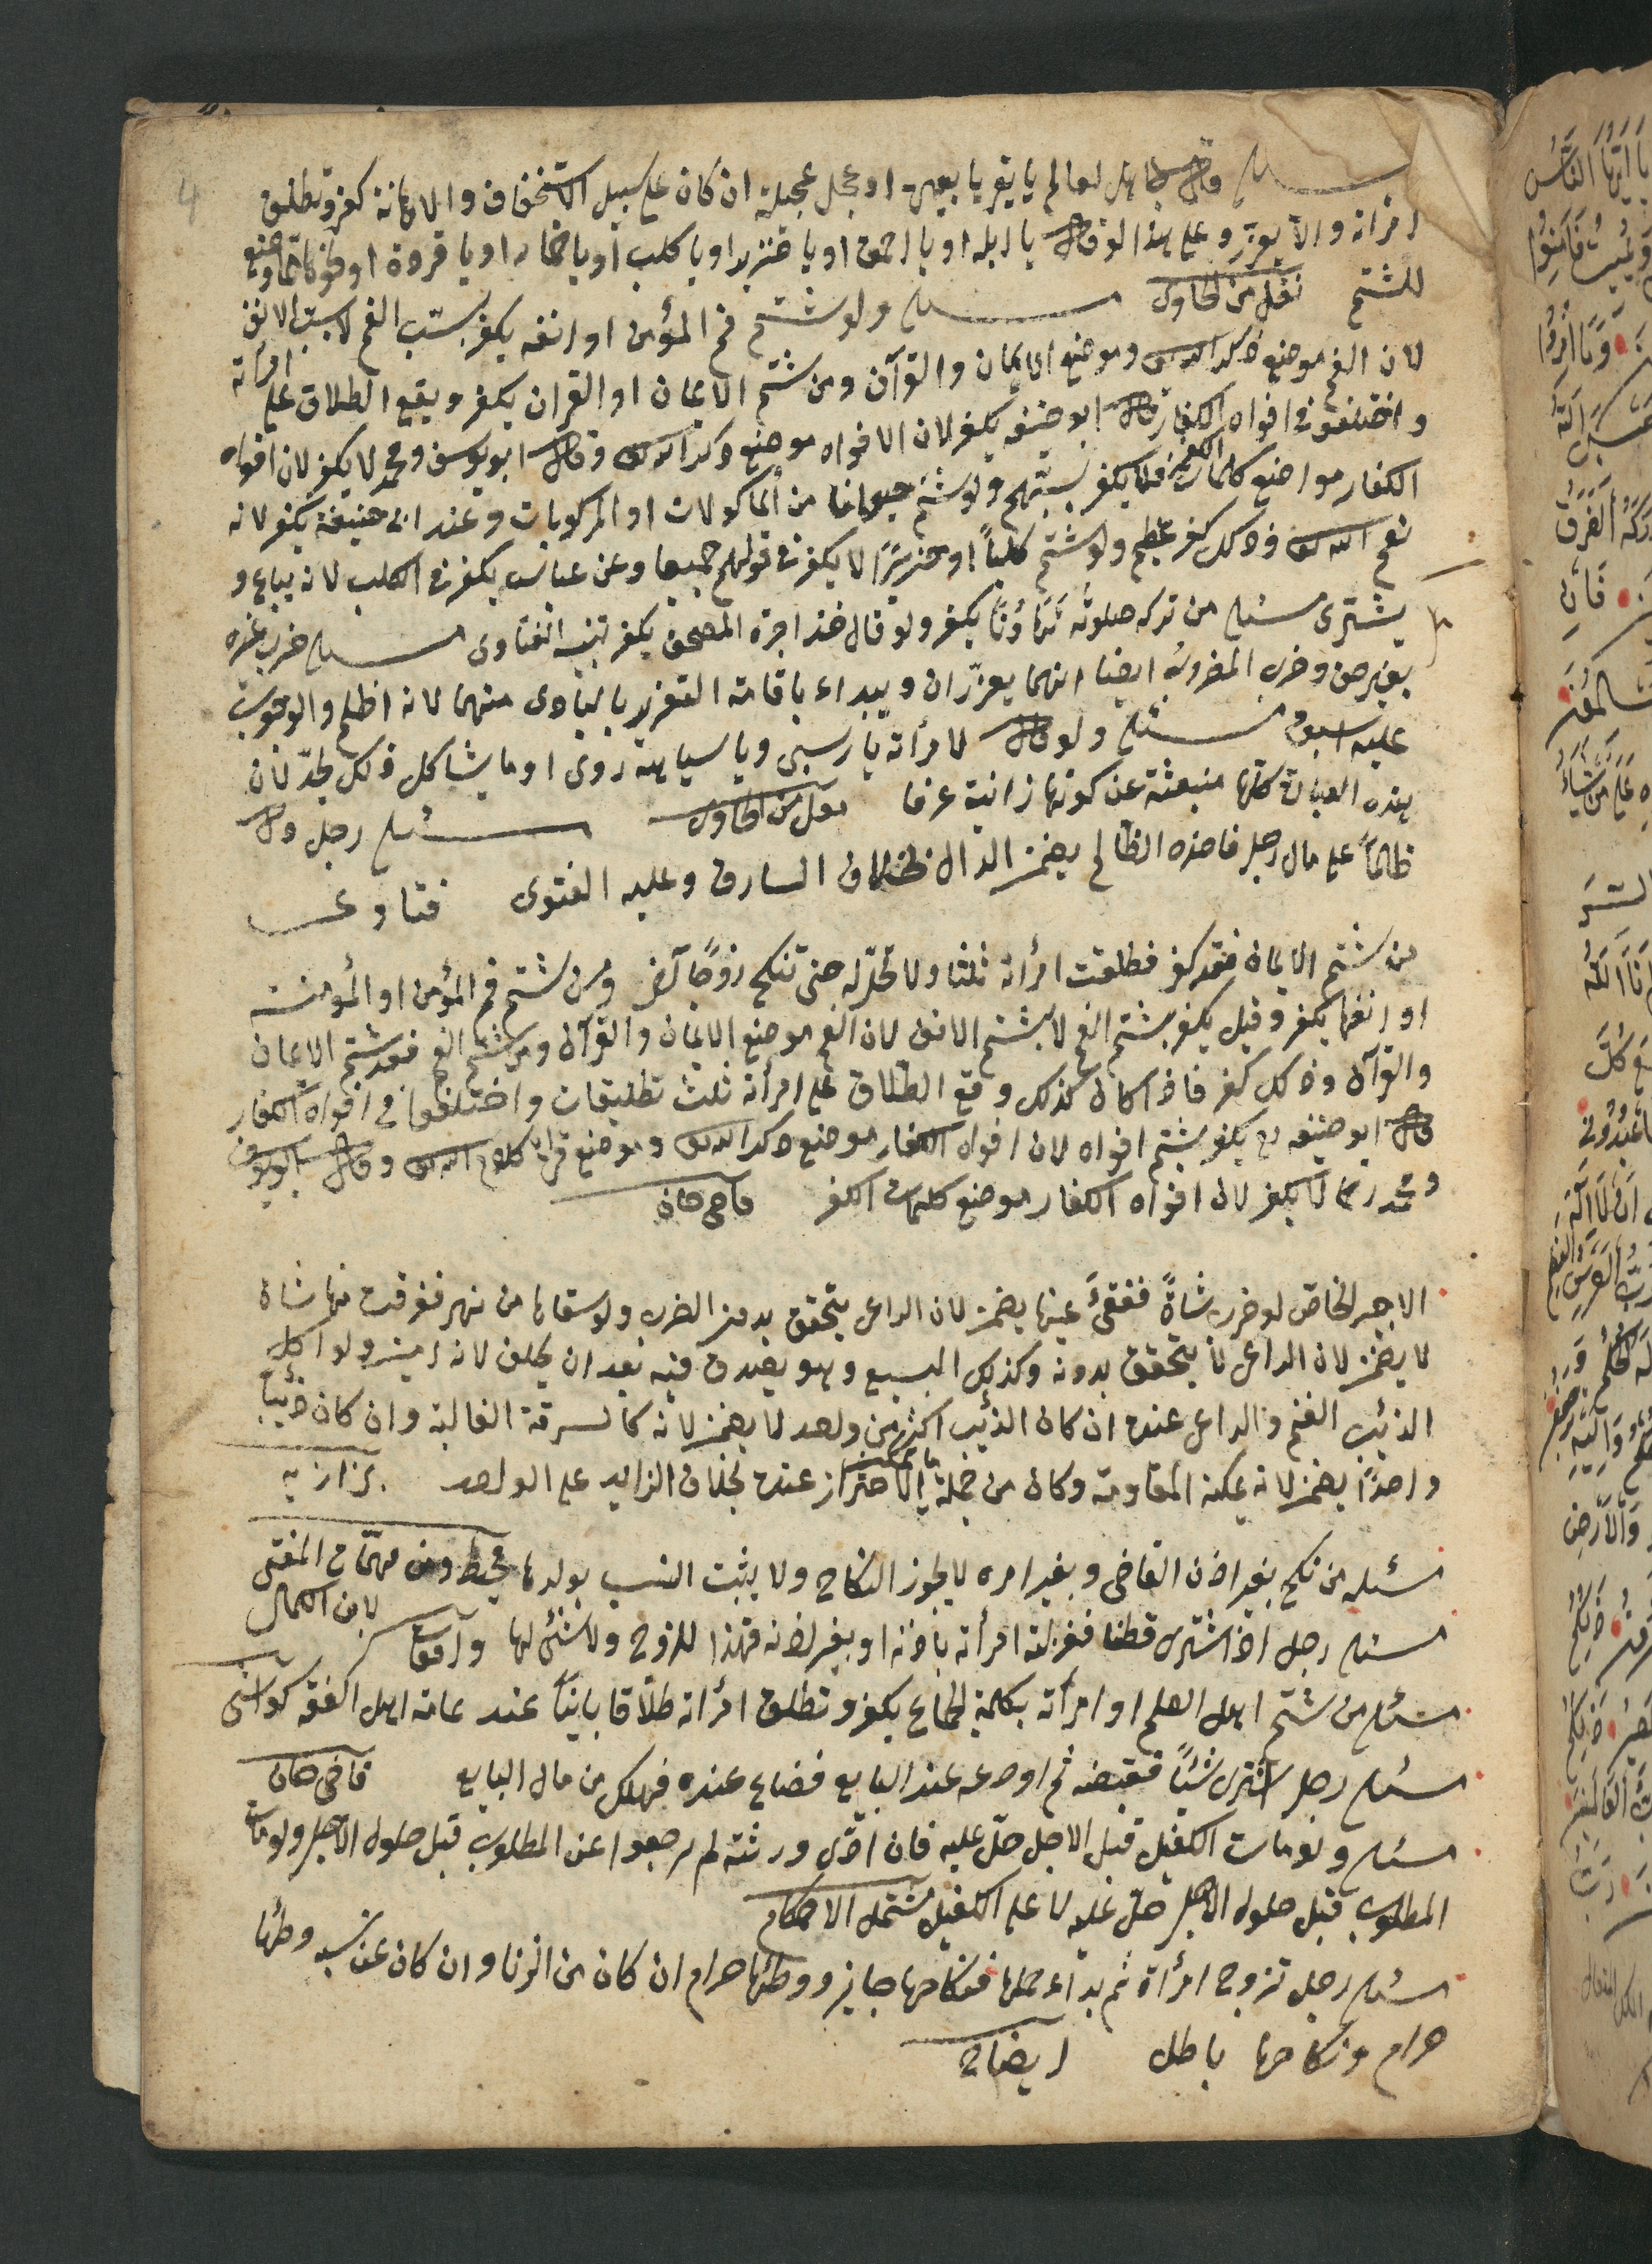 4
مسئله وقال جاهل لعالم يا بقر يا بعير او عجل عجيلة ان كان على سبيل الاستخفاف والاهانة كفر وتطلق
امرأته والا يعزر وعلى هذا لو قال يا ابله او يا احمق او يا خنزير او يا كلب او يا حمار او يا قردة او
للشتم نقل من الحاوى مسئله ولو شتم فم المؤمن او انفه يكفر بسبّ الفم لا بسبّ الانف
لان الفم موضع ذكر الله تعالى وموضع الايمان والقرآن ومن شتم الايمان او القران يكفر ويقع الطلاق على امرأته
واختلفوا فى افواه الكفار قال ابو حنيفه يكفر لان الافواه موضع ذكر الله تعالى وقال ابو يوسف ومحمد لا يكفر لان افواه
الكفار مواضع كلمات الكفر فلا يكفر بشتمهم ولو شتم حيوانا من المأكولات او المركوبات وعند ابى حنيفة يكفر لانه
نعم الله تعالى وذلك كفر عظيم ولو شتم كلباً او خنزيرًا لا يكفر فى قولهم جميعا وعن عباس يكفر فى الكلب لانه يباع و
يشترى مسئله من ترك صلوته تهاونًا يكفر ولو قال خذ اجرة المصحف يكفر الفتاوى مسئله ضرب غيره
بغير حق وضرب المضروب ايضا انهما يعزّران ويبداء باقامة التعزير بالبادى منهما لانه اظلم والوجوب
عليه اسبق مسئله ولو قال لامرأته يا روسبى ويا سياهة روى او ما يشاكل ذلك يحدّ لان
هذه العبارة كلها منبعثة عن كونها زانية عرفا نقل من الحاوى مسئله رجل دل
ظالماً على مال رجل فاخذه الظالم يضمن الدال بخلاف السارق وعليه الفتوى فتاوى
من شتم الايمان فقد كفر فطلقت امرأته ثلثا ولا تحلّ له حتى تنكح زوجًا آخر ومن شتم فم المؤمن او المؤمنة
او انفها يكفر وقيل يكفر بشتم الفم لا بشتم الانف لان الفم موضع الايمان والقرآن ومن شتم الفم فقد شتم الايمان
والقرآن وذلك كفر فاذا كان كذلك وقع الطلاق على امرأته ثلث تطليقات واختلفوا فى افواه الكفار
قال ابو حنيفه رح يكفر بشتم افواه لان افواه الكفار موضع ذكر الله تعالى وموضع كلام الله تعالى وقال ابو يوسف
ومحمد رحمهما لا يكفر لان افواه الكفار موضع كلمات الكفر قاضى خان
الاجير الخاص لو ضرب شاةً ففقئ عينها يضمن لان الراعى يتحقق بدون الضرب ولو سقاها من نهر فغرقت منها شاة
لا يضمن لان الراعى لا يتحقق بدونه وكذلك السبع وهو يصدق فيه بعد ان يحلف لانه امين ولو اكل
الذئب الغنم والراعى عنده ان كان الذئب اكثر من واحد لا يضمن لانه كالسرقة الغالبة وان كان ذئبا
واحدًا يضمن لانه يمكنه المقاومة وكان من جملة ما يمكن الاحتراز عنده بخلاف الزايد على الواحد بزازيه
مسئله من نكح بغير اذن القاضى وبغير امره لا يجوز النكاح ولا يثبت النسب بولدها محيط ومن مهمّات المفتى
لابن الكمال
مسئله رجل اذا اشترى قطنا فغزلته امرأته باذنه او بغير اذنه فهذا للزوج ولا شئ لها واقعات
مسئله من شتم اهل العلم او امرأته بكلمة الجماع يكفر وتطلق امرأته طلاقا باينًا عند عامة اهل الفقه كواشى
مسئله رجل اشترى شيئًا فقبضه ثم اودعه عند البايع فضاع عنده فهلك من مال البايع قاضى خان
مسئله ولو مات الكفيل قبل الاجل حلّ عليه فان ادّى ورثته لم يرجعوا عن المطلوب قبل حلول الاجل ولو مات
المطلوب قبل حلول الاجل حلّ عليه لا على الكفيل مشتمل الاحكام
مسئله رجل تزوج امرأة ثم بداء حملها فنكاحها جايز ووطئها حرام ان كان من الزنا وان كان عن نسب وطئها
حرام ونكاحها باطل ايضاح